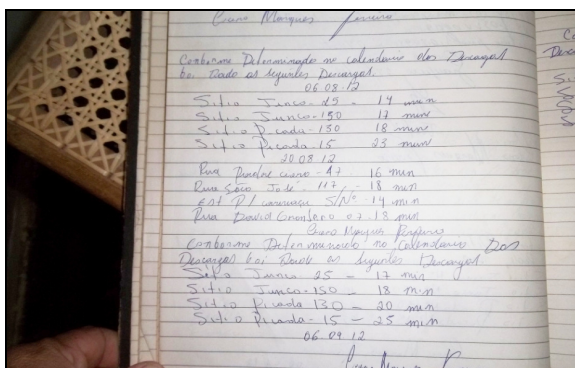 Cicero Marques Ferreira
Conforme Determinado no calendario das Descargas
foi Dado as seguintes Descargas.
06 08 12
Sitio Junco - 25 - 14 min
Sitio Junco - 150 17 min
Sitio Picada - 130 18 min
Sitio Picada - 15 23 min
20 08 12
Rua 47 16 min
Rua São José. 117 - 18 min
Est P/ S/Nº - 14 min
Rua David 07 - 13 min
Cicero Marques
Conforme Determinado no Calendario Das
Descargas foi Dado as seguintes Descargas
Sitio Junco 25 - 17 min
Sitio Junco - 150 - 18 min
Sitio Picada 130 - 20 min
Sitio Picada - 15 - 25 min
06 09 12